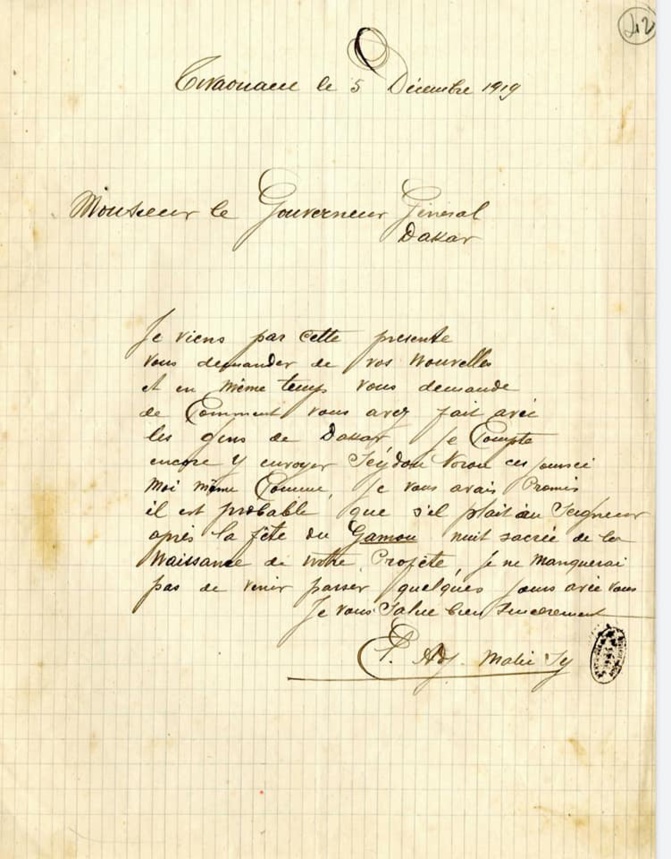 42
Tivaouane le 5 Décembre 1919
Monsieur le Gouverneur Général
Dakar
Je viens par cette presente
vous demander de vos nouvelles
et en même temps vous demande
de Comment vous avez fait avec
les gens de Dakar Je Compte
encore y envoyer Seydou Norou ces jours ci
Moi même Comme, je vous avais Promis
il est probable que s'el plait au Seigneur
après la fête du Gamou nuit sacrée de la
Naissance de notre Profète, je ne manquerai
pas de venir passer quelques jours avec vous
Je vous Salue bien sincèrement
Malic Sy